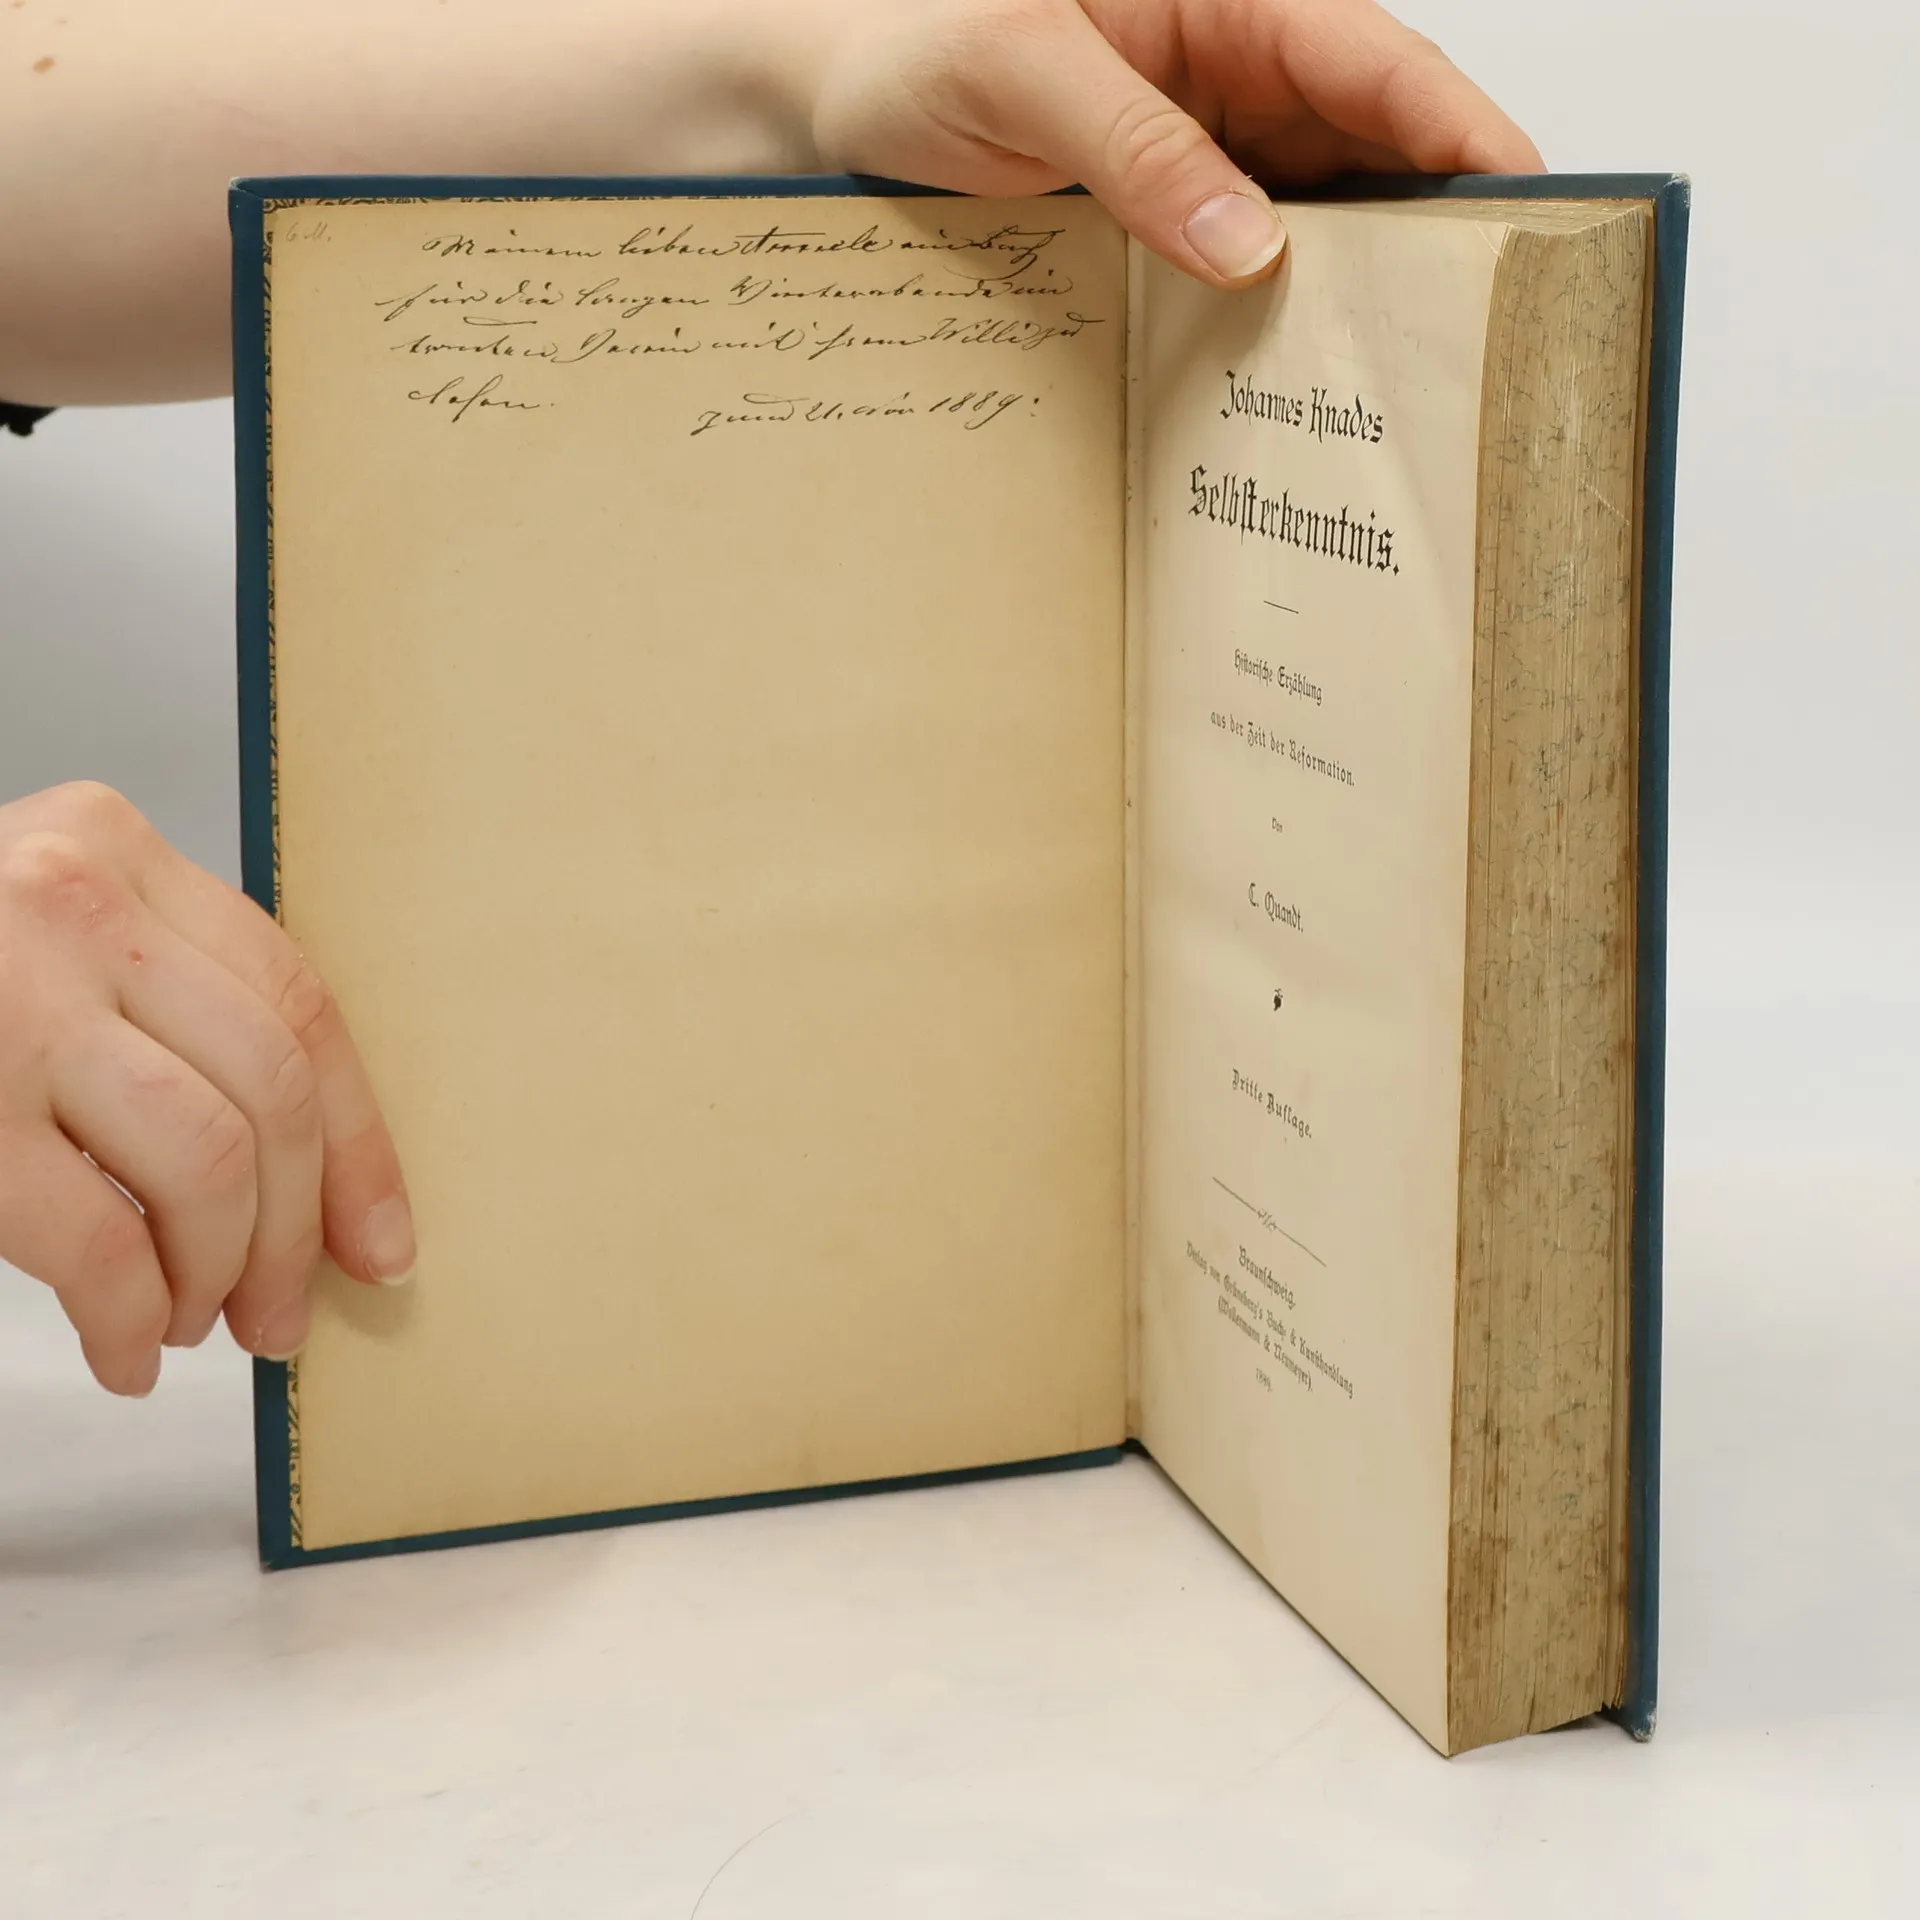 6 M.
Meinem lieben ein Buch
für die langen Winterabende im
trauten Verein mit Ihrem Willi zu
lesen.
zum 21. Nov 1889.
Johannes Knades
Selbsterkenntnis.
Historische Erzählung
aus der Zeit der Reformation.
Von
C. Quandt.
Dritte Auflage.
Braunschweig.
Verlag von Grüneberg's Buch- & Kunsthandlung
(Wollermann & Neumeyer).